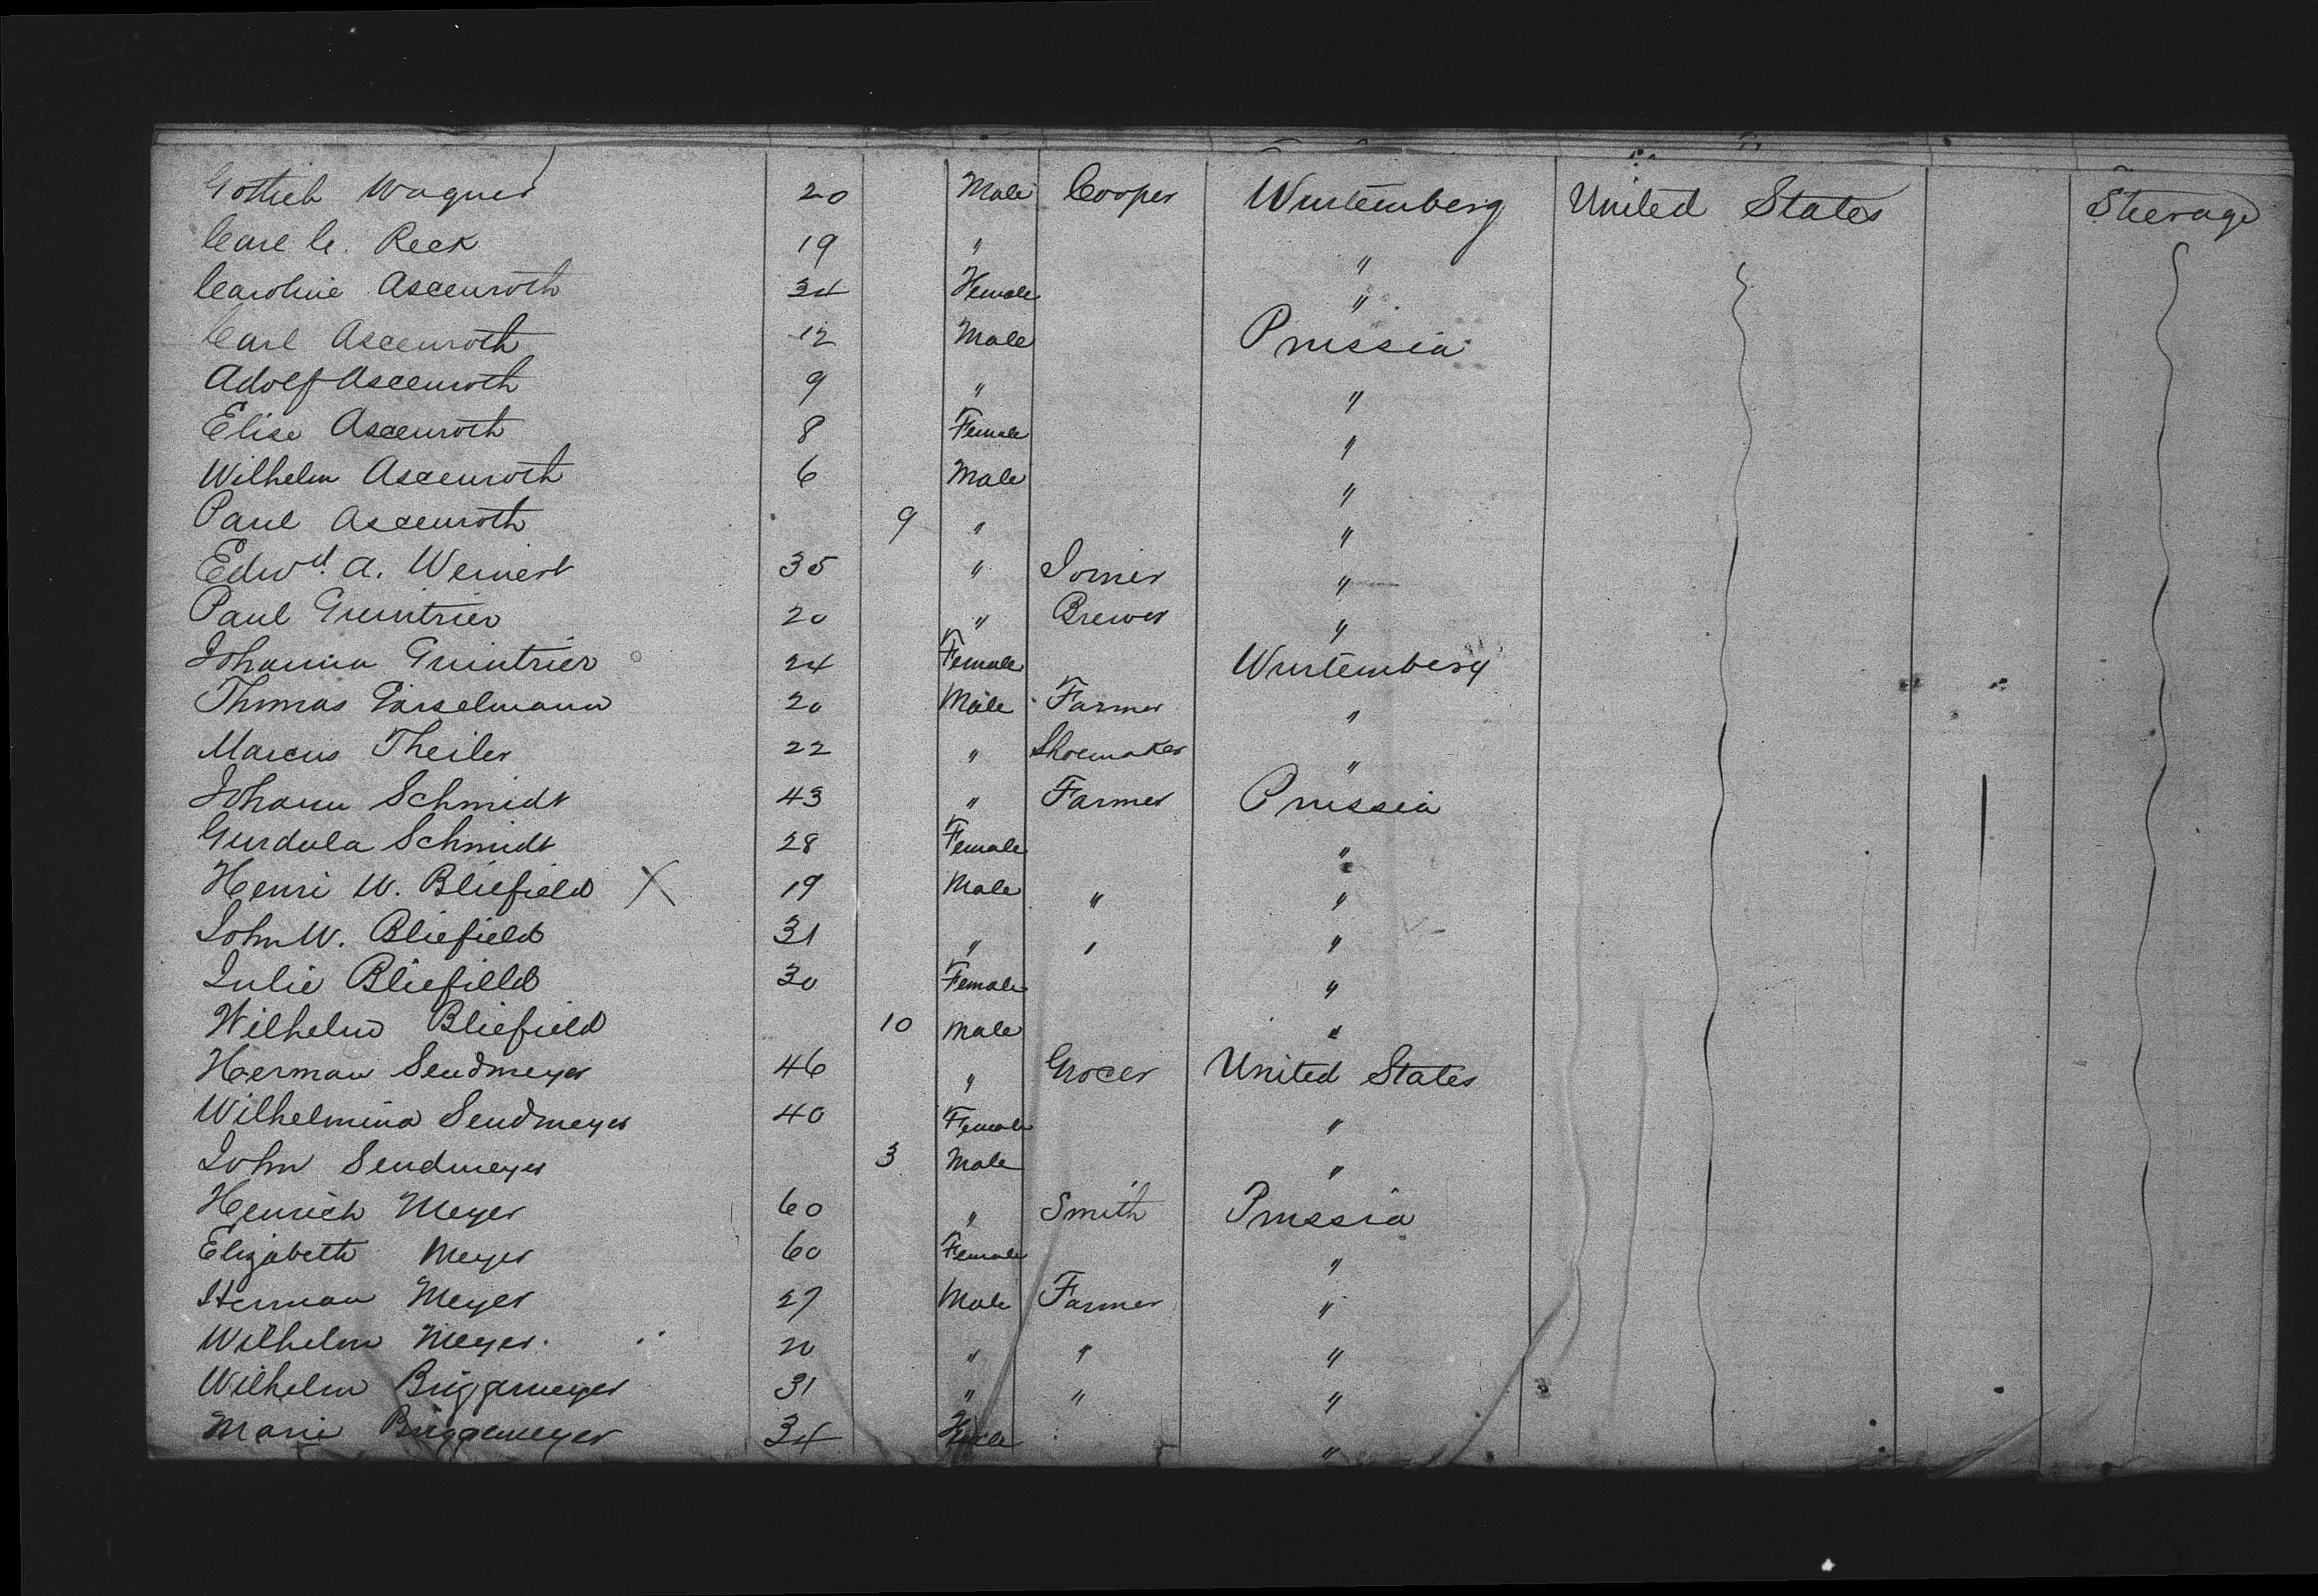 Gottlieb Wagner 20 Male Cooper Wurtemberg United States Steerage
Carl C. Reck 19 " "
Caroline Ascenroth 34 Female "
Carl Ascenroth 12 Male Prussia
Adolf Ascenroth 9 " "
Elise Ascenroth 8 Female "
Wilhelm Ascenroth 6 Male "
Paul Ascenroth 9 " "
Edwd. A. Weinert 35 " Joiner "
Paul Guintrier 20 " Brewer "
Johanna Guintrier 24 Female Wurtemberg
Thomas 20 Male Farmer "
Marcus Theiler 22 " Shoemaker "
Johann Schmidt 43 " Farmer Prussia
Gurdula Schmidt 28 Female "
Henri W. Bliefield X 19 Male " "
John W. Bliefield 31 " " "
Julie Bliefield 30 Female "
Wilhelm Bliefield 10 Male "
Herman Sendmeyer 46 " Grocer United States
Wilhelmina Sendmeyer 40 Female "
John Sendmeyer 3 Male "
Henrich Meyer 60 " Smith Prussia
Elizabeth Meyer 60 Female "
Herman Meyer 27 Male Farmer "
Wilhelm Meyer. 20 " " "
Wilhelm Briggemeyer 31 " " "
Marie Briggemeyer 34 Female "